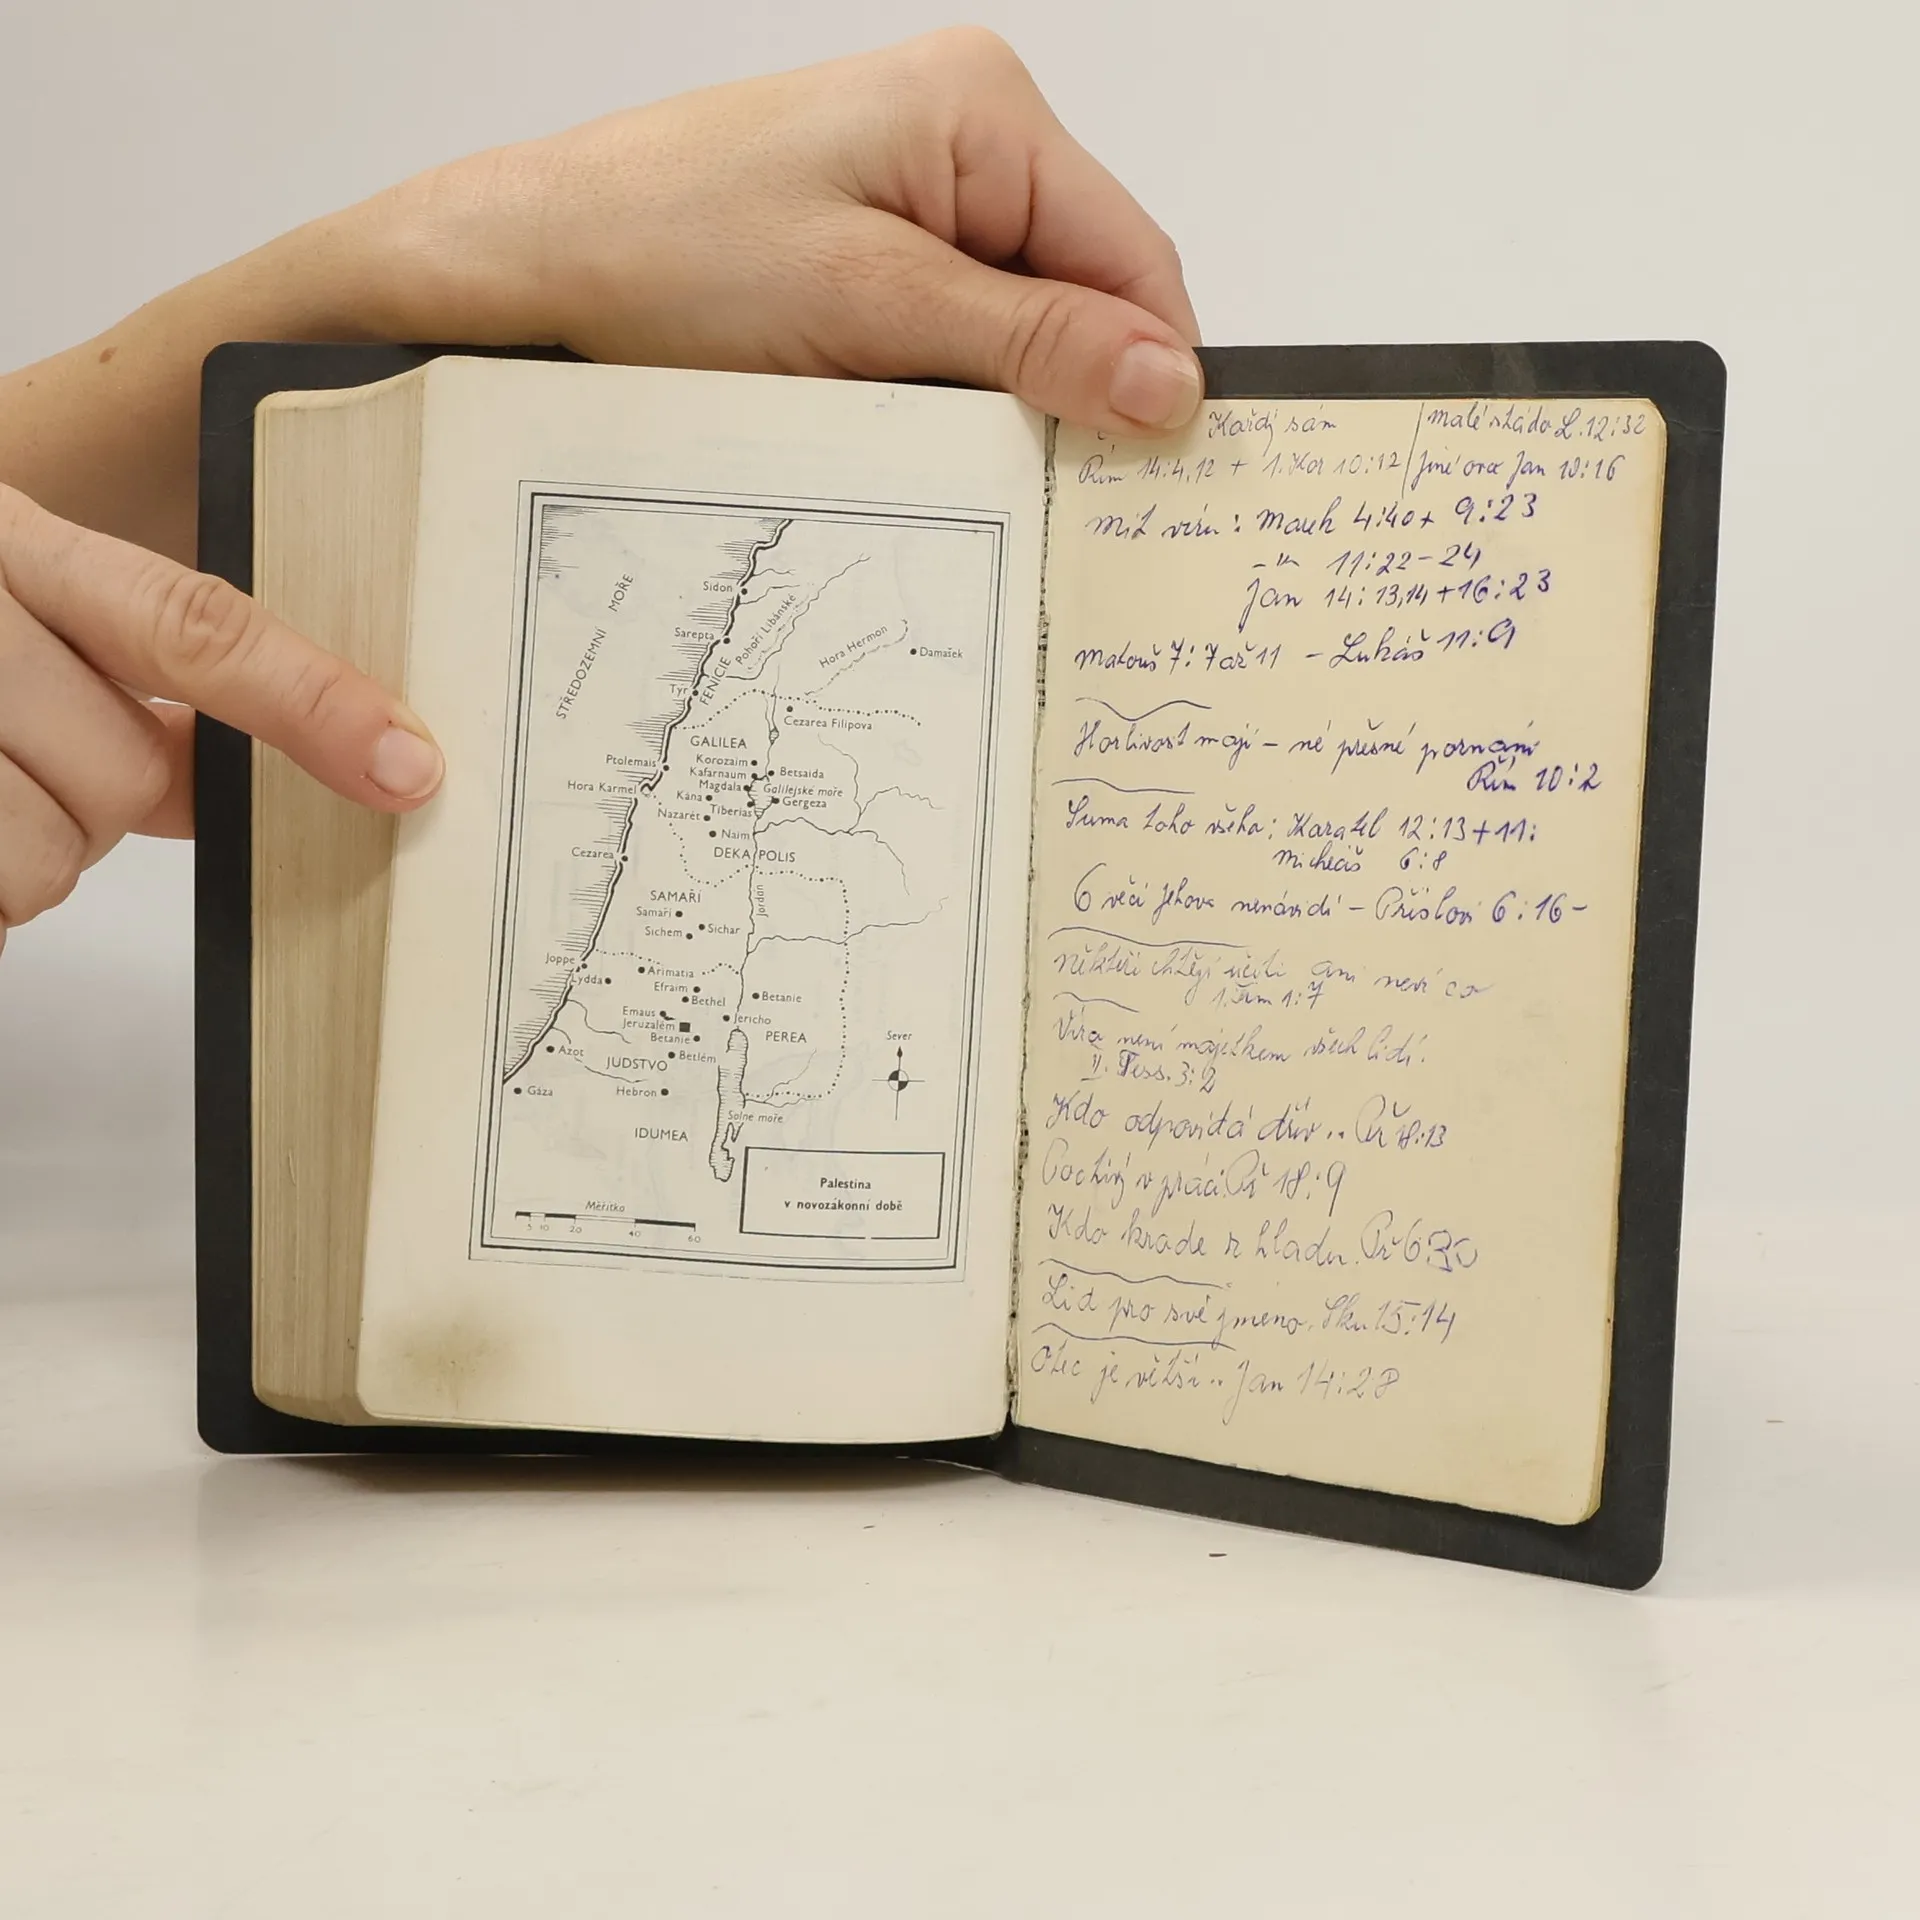 STŘEDOZEMNÍ MOŘE
Sidon
Sarepta
Pohoří Libánské
FENICIE
Hora Hermon
Damašek
Týr
Cezarea Filipova
GALILEA
Ptolemais
Korozaim
Kafarnaum
Betsaida
Hora Karmel
Magdala
Galilejské moře
Kána
Gergeza
Tiberias
Nazarét
Naim
Cezarea
DEKAPOLIS
SAMAŘÍ
Samaří
Jordán
Sichar
Sichem
Joppe
Arimatia
Lydda
Efraim
Betanie
Bethel
Emaus
Jericho
Jeruzalém
PEREA
Sever
Betanie
Azot
Betlém
JUDSTVO
Gáza
Hebron
Solné moře
IDUMEA
Palestina
v novozákonní době
Měřítko
5 10 20 40 60
Každý sám
malé stádo L. 12:32
Řím 14:4,12 + 1.Kor 10:12
jiné ovce Jan 10:16
Mít víru: Marek 4:40 + 9:23
-"- 11:22-24
Jan 14:13,14 + 16:23
Matouš 7:7 až 11 - Lukáš 11:9
Horlivost mají - né přesné poznání
Řím 10:2
Suma toho všeho: Kazatel 12:13 + 11:
Micheáš 6:8
6 věcí Jehova nenávidí - Přísloví 6:16-
někteří chtějí učiti ani neví co
1. Tim 1:7
Víra není majetkem všech lidí.
II. Tess. 3:2
Kdo odpovídá dřív.. Př 18:13
Poctivý v práci. Př 18:9
Kdo krade z hladu. Př 6:30
Lid pro své jméno. Sku 15:14
Otec je větší.. Jan 14:28